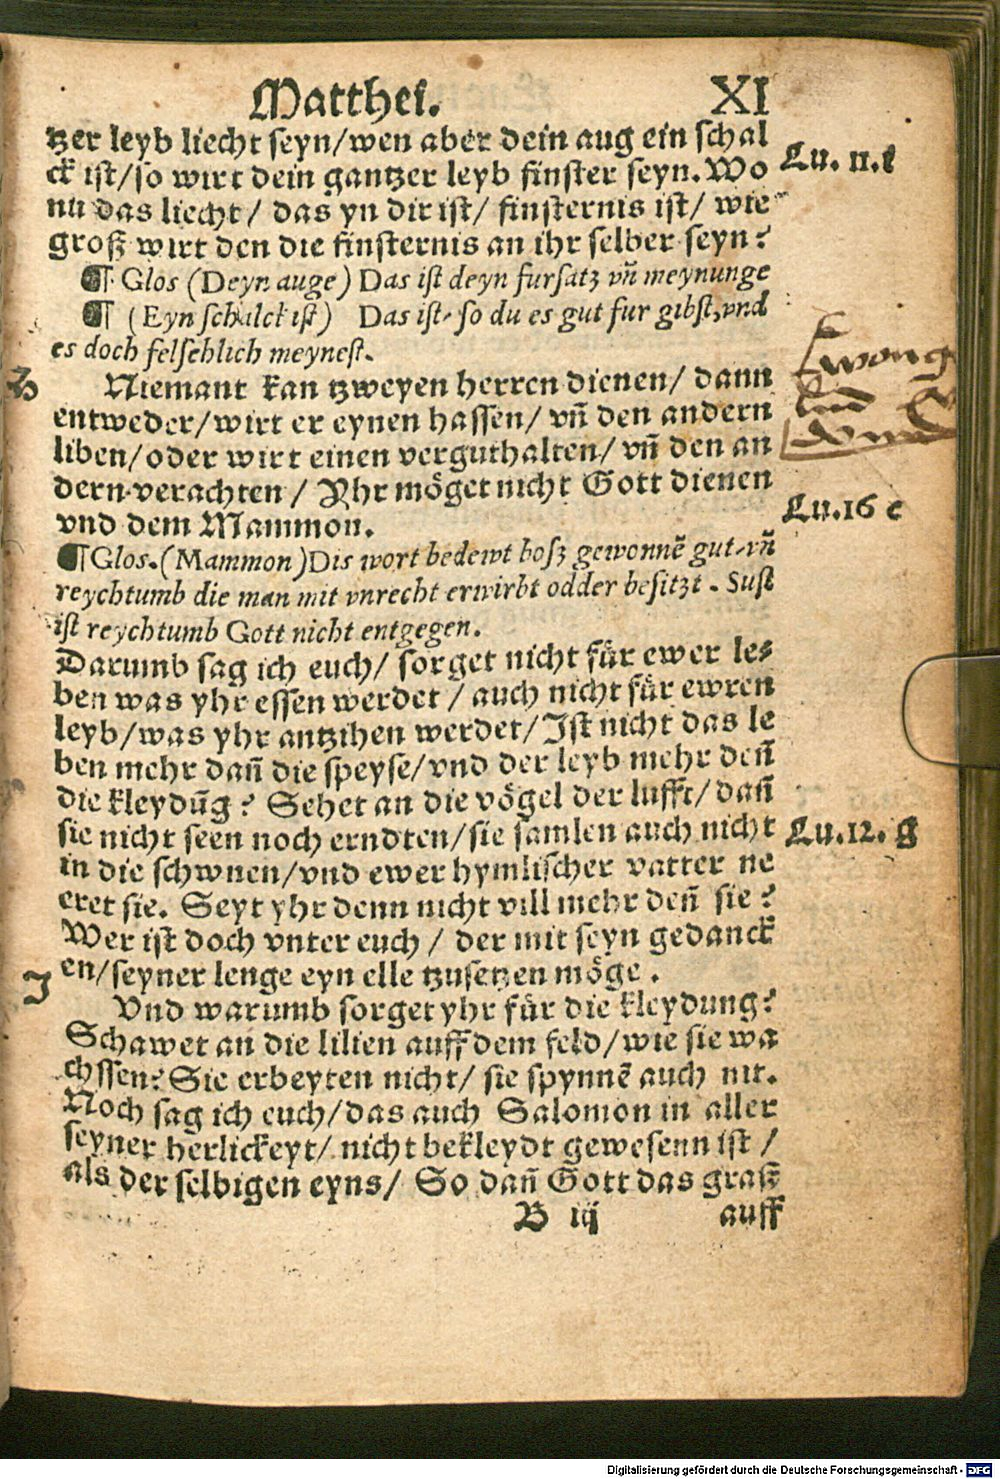 Matthei. XI
tzer leyb liecht seyn/wen aber dein aug ein schal
ck ist/so wirt dein gantzer leyb finster seyn. Wo
nu das liecht/ das yn dir ist/ finsternis ist/ wie
groß wirt den die finsternis an ihr selber seyn?
Lu. 11. f
¶ Glos (Deyn auge) Das ist deyn fursatz vñ meynunge
¶ (Eyn schalck ist) Das ist, so du es gut fur gibst, vnd
es doch felschlich meynest.
H
Niemant kan tzweyen herren dienen/ dann
entweder/wirt er eynen hassen/ vñ den andern
liben/oder wirt einen verguthalten/ vñ den an
dern verachten / Yhr möget nicht Gott dienen
vnd dem Mammon.
Lu. 16 c
¶ Glos. (Mammon) Dis wort bedewt boß gewonnẽ gut, vñ
reychtumb die man mit vnrecht erwirbt odder besitzt. Sust
ist reychtumb Gott nicht entgegen.
Darumb sag ich euch/ sorget nicht für ewer le⸗
ben was yhr essen werdet / auch nicht für ewren
leyb/was yhr antzihen werdet/Ist nicht das le
ben mehr dañ die speyse/vnd der leyb mehr deñ
die kleydũg? Sehet an die vögel der lufft/ dañ
sie nicht seen noch erndten/sie samlen auch nicht
Lu. 12. g
in die schwnen/vnd ewer hymlischer vatter ne
eret sie. Seyt yhr denn nicht vill mehr deñ sie?
Wer ist doch vnter euch / der mit seyn gedanck
en/seyner lenge eyn elle tzusetzen möge.
J
Vnd warumb sorget yhr für die kleydung?
Schawet an die lilien auff dem feld/wie sie wa
chssen? Sie erbeyten nicht/ sie spynnẽ auch nit.
Noch sag ich euch/das auch Salomon in aller
seyner herlickeyt/ nicht bekleydt gewesenn ist /
als der selbigen eyns/ So dañ Gott das graß
B iij auff
Digitalisierung gefördert durch die Deutsche Forschungsgemeinschaft - DFG